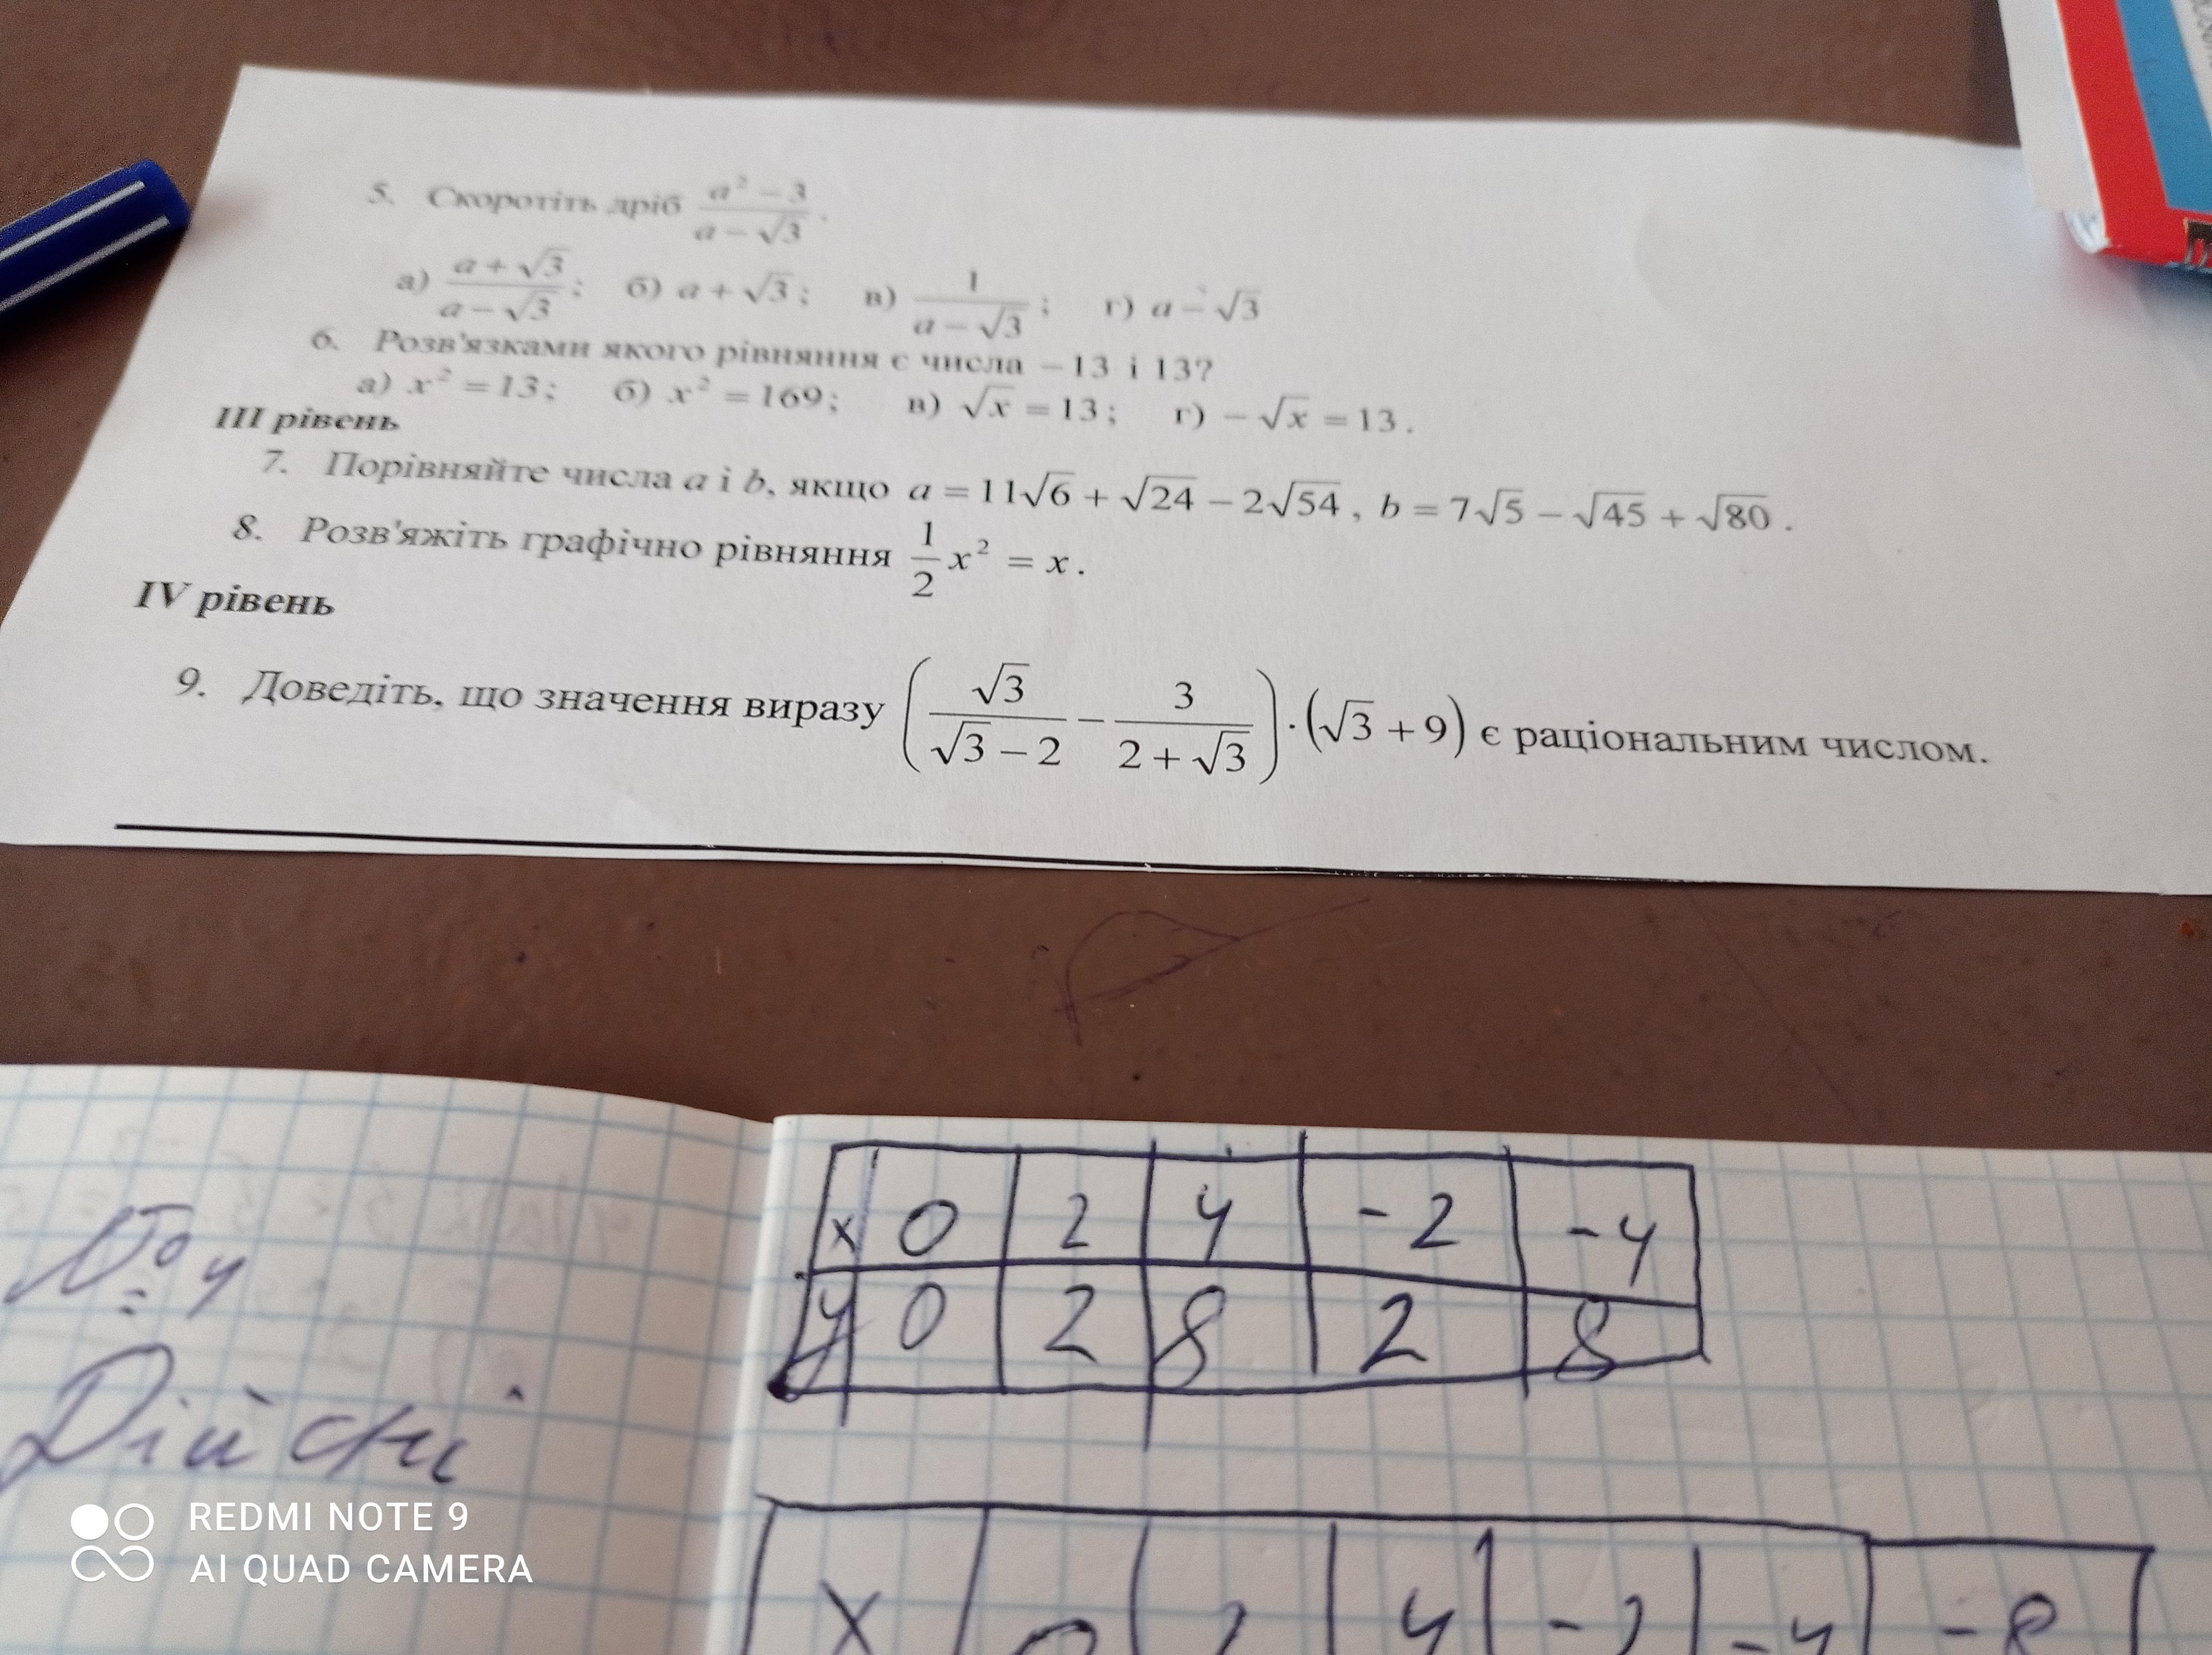 5. Скоротіть дріб (a² − 3)/(a − √3).
а) (a + √3)/(a − √3); б) a + √3; в) 1/(a − √3); г) a − √3
6. Розв'язками якого рівняння є числа −13 і 13?
а) x² = 13; б) x² = 169; в) √x = 13; г) −√x = 13.
III рівень
7. Порівняйте числа a і b, якщо a = 11√6 + √24 − 2√54, b = 7√5 − √45 + √80.
8. Розв'яжіть графічно рівняння 1/2 x² = x.
IV рівень
9. Доведіть, що значення виразу (√3/(√3 − 2) − 3/(2 + √3)) · (√3 + 9) є раціональним числом.
№ 4
Дійсні
x 0 2 4 -2 -4
y 0 2 8 2 8
x 0 2 4 -2 -4 -8
REDMI NOTE 9
AI QUAD CAMERA